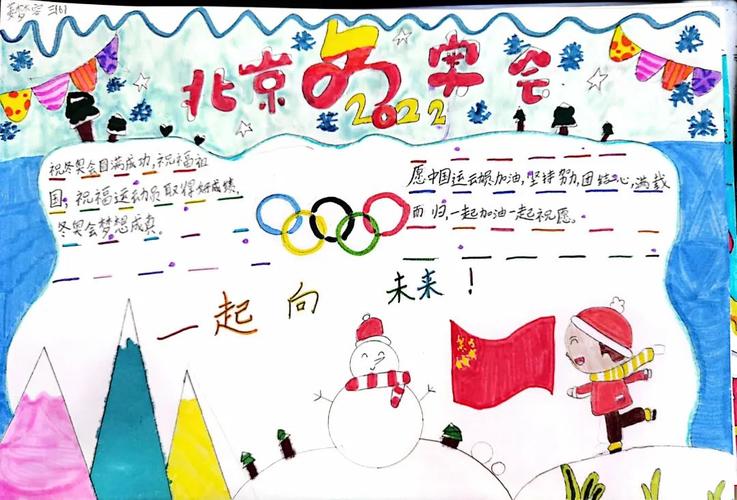 北京冬奥会
2022
祝冬奥会圆满成功,祝福祖
国,祝福运动员取得好成绩,
冬奥会梦想成真。
愿中国运动员加油,坚持努力,团结心,满载
而归,一起加油一起祝愿。
一起向未来!